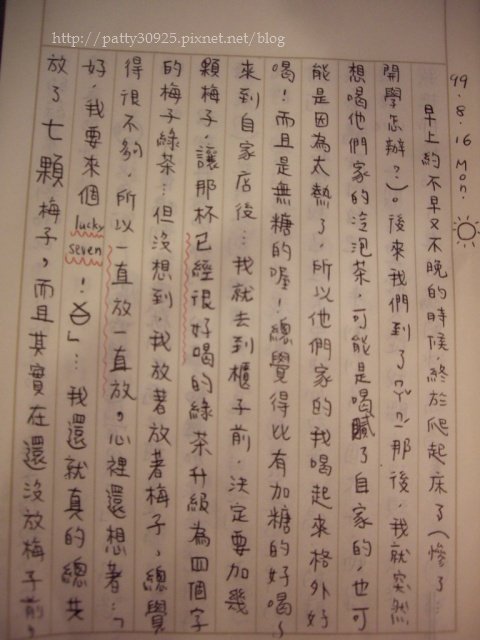 http://patty30925.pixnet.net/blog
99.8.16 Mon.
早上約不早又不晚的時候，終於爬起床了(慘了…
開學怎辦？)。後來我們到了ㄇㄚˊㄇㄧ那後，我就突然
想喝他們家的泡泡茶，可能是喝膩了自家的，也可
能是因為太熱了，所以他們家的我喝起來格外好
喝！而且是無糖的喔！總覺得比有加糖的好喝～
來到自家店後…我就去到櫃子前，決定要加幾
顆梅子，讓那杯已經很好喝的綠茶升級為四個字
的梅子綠茶…但沒想到，我放著放著梅子，總覺
得很不夠，所以一直放一直放。心裡還想著…「
好，我要來個lucky seven！」…我還就真的總共
放了七顆梅子，而且其實在還沒放梅子前，